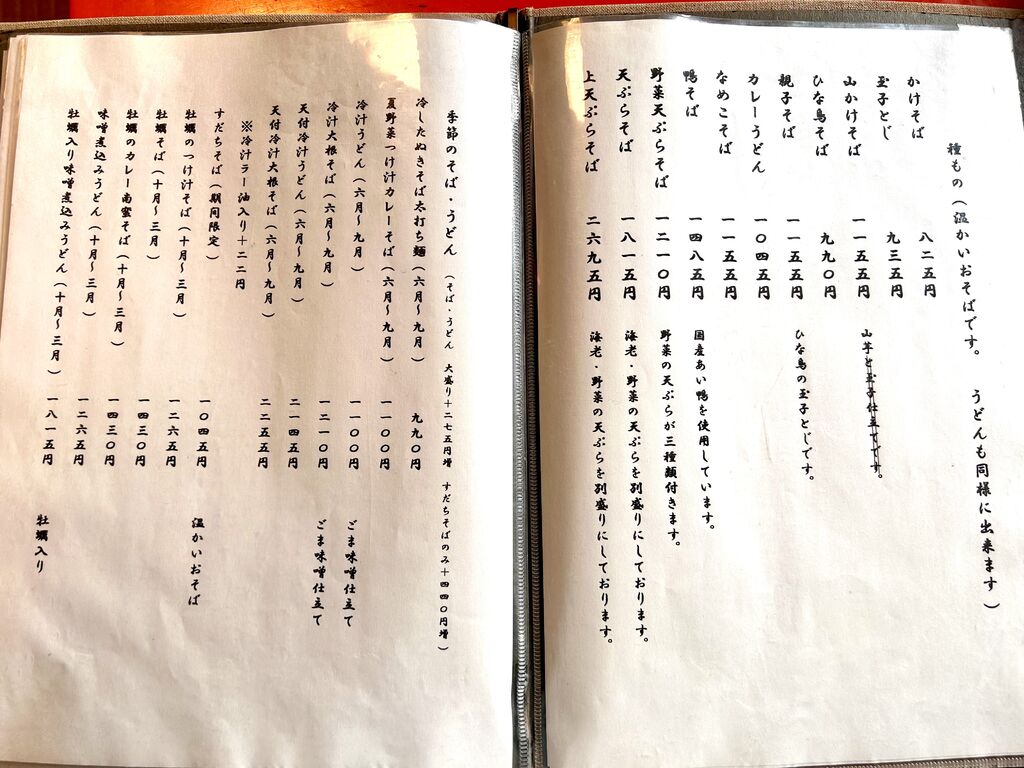 種もの(温かいおそばです。 うどんも同様に出来ます)
かけそば 八二五円
玉子とじ 九三五円
山かけそば 一一五五円 山芋と玉子仕立てです。
ひな鳥そば 九九〇円
親子そば 一一五五円 ひな鳥の玉子とじです。
カレーうどん 一〇四五円
なめこそば 一一五五円
鴨そば 一四八五円 国産あい鴨を使用しています。
野菜天ぷらそば 一二一〇円 野菜の天ぷらが三種類付きます。
天ぷらそば 一八一五円 海老・野菜の天ぷらを別盛りにしております。
上天ぷらそば 二六九五円 海老・野菜の天ぷらを別盛りにしております。
季節のそば・うどん (そば・うどん 大盛り+二七五円増 すだちそばのみ+四四〇円増)
冷したぬきそば太打ち麺(六月〜九月) 九九〇円
夏野菜つけ汁カレーそば(六月〜九月) 一一〇〇円
冷汁うどん(六月〜九月) 一一〇〇円 ごま味噌仕立て
冷汁大根そば(六月〜九月) 一二一〇円 ごま味噌仕立て
天付冷汁うどん(六月〜九月) 二一四五円
天付冷汁大根そば(六月〜九月) 二二五五円
※冷汁ラー油入り+二二円
すだちそば(期間限定) 一〇四五円 温かいおそば
牡蠣のつけ汁そば(十月〜三月) 一二六五円
牡蠣そば(十月〜三月) 一四三〇円
牡蠣のカレー南蛮そば(十月〜三月) 一四三〇円
味噌煮込みうどん(十月〜三月) 一二六五円
牡蠣入り味噌煮込みうどん(十月〜三月) 一八一五円 牡蠣入り